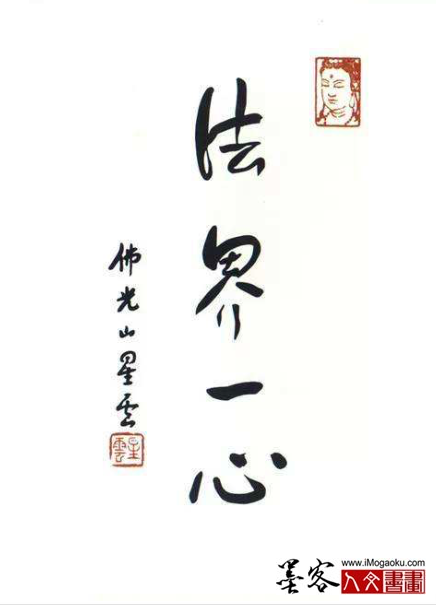 法界一心
佛光山星雲
星雲
www.iMogaoku.com
墨客
人文書畫